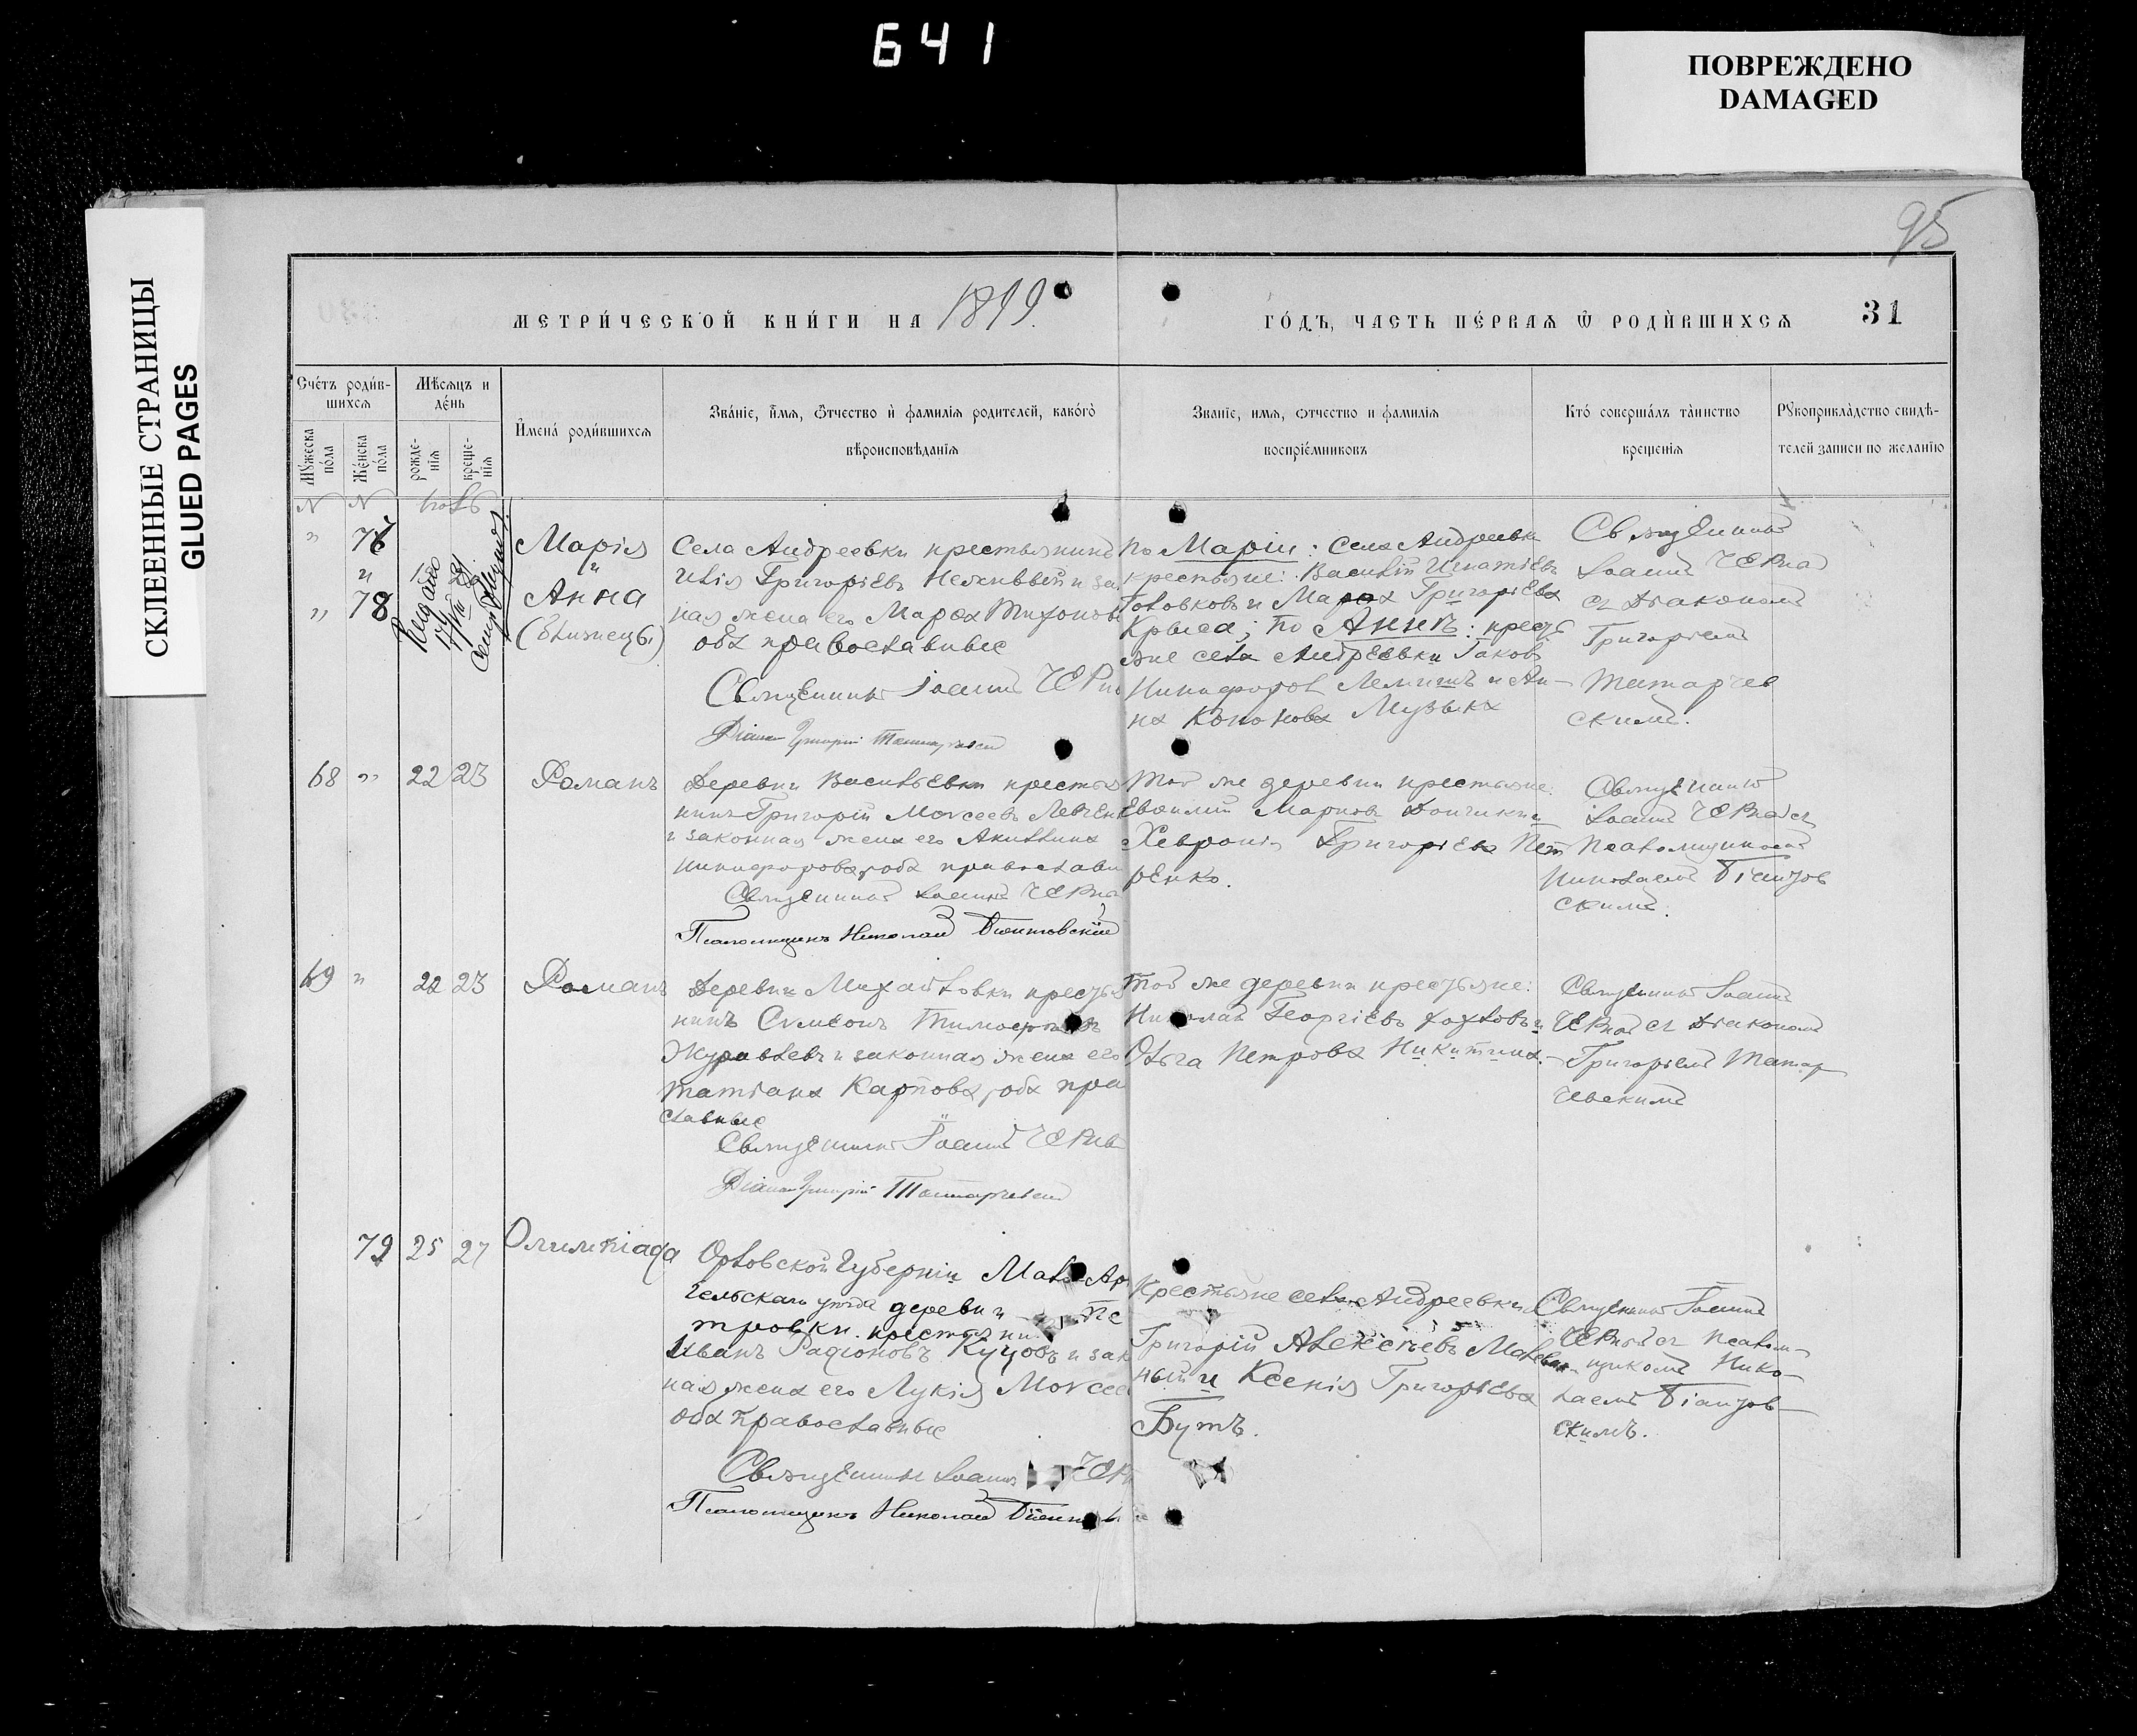 641
ПОВРЕЖДЕНО
DAMAGED
СКЛЕЕННЫЕ СТРАНИЦЫ
GLUED PAGES
95
МЕТРИ́ЧЕСКОЙ КНИ́ГИ НА 1899.
ГО́ДЪ, ЧАСТЬ ПЕ́РВАѦ Ѿ РОДИ́ВШИХСѦ
31
Сче́тъ роди́в-
шихсѧ
Мѣсѧцъ и
де́нь
Мꙋжеска
по́ла
Же́нска
по́ла
рожде-
нїѧ
креще-
нїѧ
И҆мена́ роди́вшихсѧ
Зва́нїе, и҆́мѧ, ѻ҆́тчество и҆ фамилїѧ родителей, како́гѡ
вѣроисповѣ́данїѧ
Званїе, имѧ, ѻтчество и фамилїѧ
воспрїе́мниковъ
Кто̀ соверша́лъ та́инство
крещенїѧ
Рꙋкоприкла́дство свидѣ-
телей записи по желанїю
N N
" 77
"
" 78
Марія
и
Анна
(близнецы)
Села Андреевки крестьянинъ
Илія Григорьевъ Неживый и за
ная жена его Марѳа Тихонов
оба православные
Священникъ Іоаннъ Черн
Діаконъ Григорій Татарчевскій
По Маріи: села Андреевки
крестьяне: Василій Игнатіевъ
Головковъ и Марѳа Григорьева
Крыса; По Аннѣ: кресть
яне села Андреевки Іаковъ
Никифоровъ Лемишъ и Ан-
на Кононова Музыка
Священникъ
Іоаннъ Черна
съ Діакономъ
Григоріемъ
Татарчев
скимъ.
68 " 22 23
Романъ
Деревни Васильевки крестья
нинъ Григорій Моѵсеевъ Левчен
и законная жена его Акилина
Никифорова, оба православн
Священникъ Іоаннъ Черна
Псаломщикъ Николай
Той же деревни крестьяне:
Евѳимій Марковъ Дончикъ и
Хевронія Григорьева Пет
ренко.
Священникъ
Іоаннъ Черна съ
Псаломщикомъ
Николаемъ
скимъ.
69 " 22 23
Романъ
Деревни Михайловки кресть
нинъ Сѵмеонъ Тимоѳеевъ
Журавлевъ и законная жена его
Татіана Карпова, оба пра
славные
Священникъ Іоаннъ Черна
Діаконъ Григорій Татарчевскій
Той же деревни крестьяне:
Николай Георгіевъ Хохловъ и
Ольга Петрова Никитина.
Священникъ Іоаннъ
Черна съ Діакономъ
Григоріемъ Татар
чевскимъ
79 25 27
Олимпіада
Орловской Губерніи Мало Ар
гельскаго уѣзда деревни Пе
тровки крестьянин
Иванъ Радіоновъ Куцовъ и зак
ная жена его Лукія Моѵсее
оба православные
Священникъ Іоаннъ Черн
Псаломщикъ Николай
Крестьяне села Андреевки
Григорій Алексѣевъ Малеван
ный и Ксенія Григорьева
Бутъ.
Священникъ Іоаннъ
Черна съ Псалом-
щикомъ Нико-
лаемъ
скимъ.